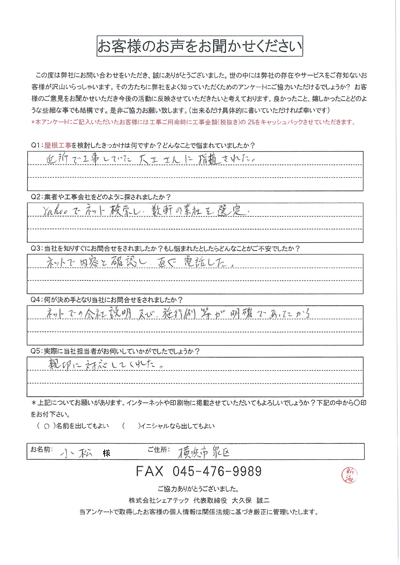 お客様のお声をお聞かせください
この度は弊社にお問い合わせをいただき、誠にありがとうございました。世の中には弊社の存在やサービスをご存知ないお
客様が沢山いらっしゃいます。その方たちに弊社をよく知っていただくためのアンケートにご協力いただけるでしょうか? お客
様のご意見をお聞かせいただき今後の活動に反映させていただきたいと考えております。良かったこと、嬉しかったことどのよ
うな些細な事でも結構です。是非ご協力お願い致します。(出来るだけ具体的に書いていただければ幸いです)
*本アンケートにご記入いただいたお客様には工事ご用命時に工事金額(税抜き)の2%をキャッシュバックさせていただきます。
Q1:屋根工事を検討したきっかけは何ですか?どんなことで悩まれていましたか?
近所で工事していた大工さんに指摘された。
Q2:業者や工事会社をどのように探されましたか?
Yahooでネット検索し、数軒の業社を選定。
Q3:当社を知りすぐにお問合せをされましたか?もし悩まれたとしたらどんなことがご不安でしたか?
ネットで内容を確認し、直ぐ電話した。
Q4:何が決め手となり当社にお問合せをされましたか?
ネットでの会社説明及び、施行例等が明確であったから
Q5:実際に当社担当者がお伺いしていかがでしたでしょうか?
親切に対応してくれた。
*上記についてお願いがあります。インターネットや印刷物に掲載させていただいてもよろしいでしょうか?下記の中から〇印
をお付下さい。
(○)名前を出してもよい ( )イニシャルなら出してもよい
お名前: 小松 様 ご住所: 横浜市泉区
FAX 045-476-9989
ご協力ありがとうございました。
株式会社シェアテック 代表取締役 大久保 誠二
当アンケートで取得したお客様の個人情報は関係法規に基づき厳正に管理いたします。